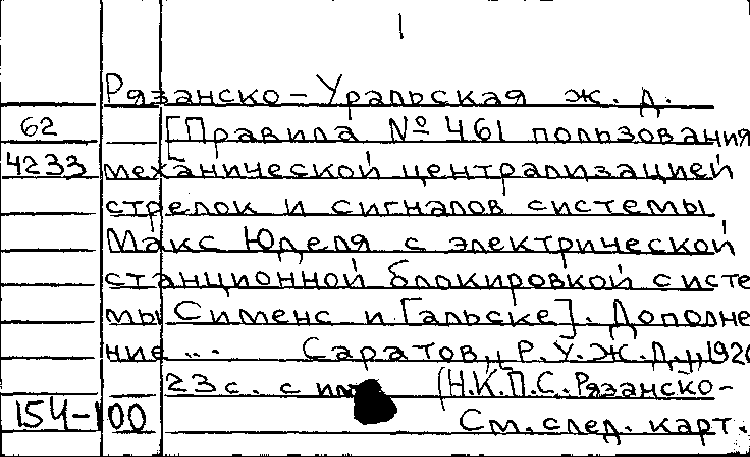 1
Рязанско-Уральская ж. д.
62 [Правила № 461 пользования
4233 механической централизацией
стрелок и сигналов системы
Макс Юделя с электрической
станционной блокировкой систе
мы Сименс и Гальске]. Дополне
ние... Саратов, "Р.У.Ж.Д.", 192
23 с. с (Н.К.П.С. Рязанско-
154-100 См. след. карт.